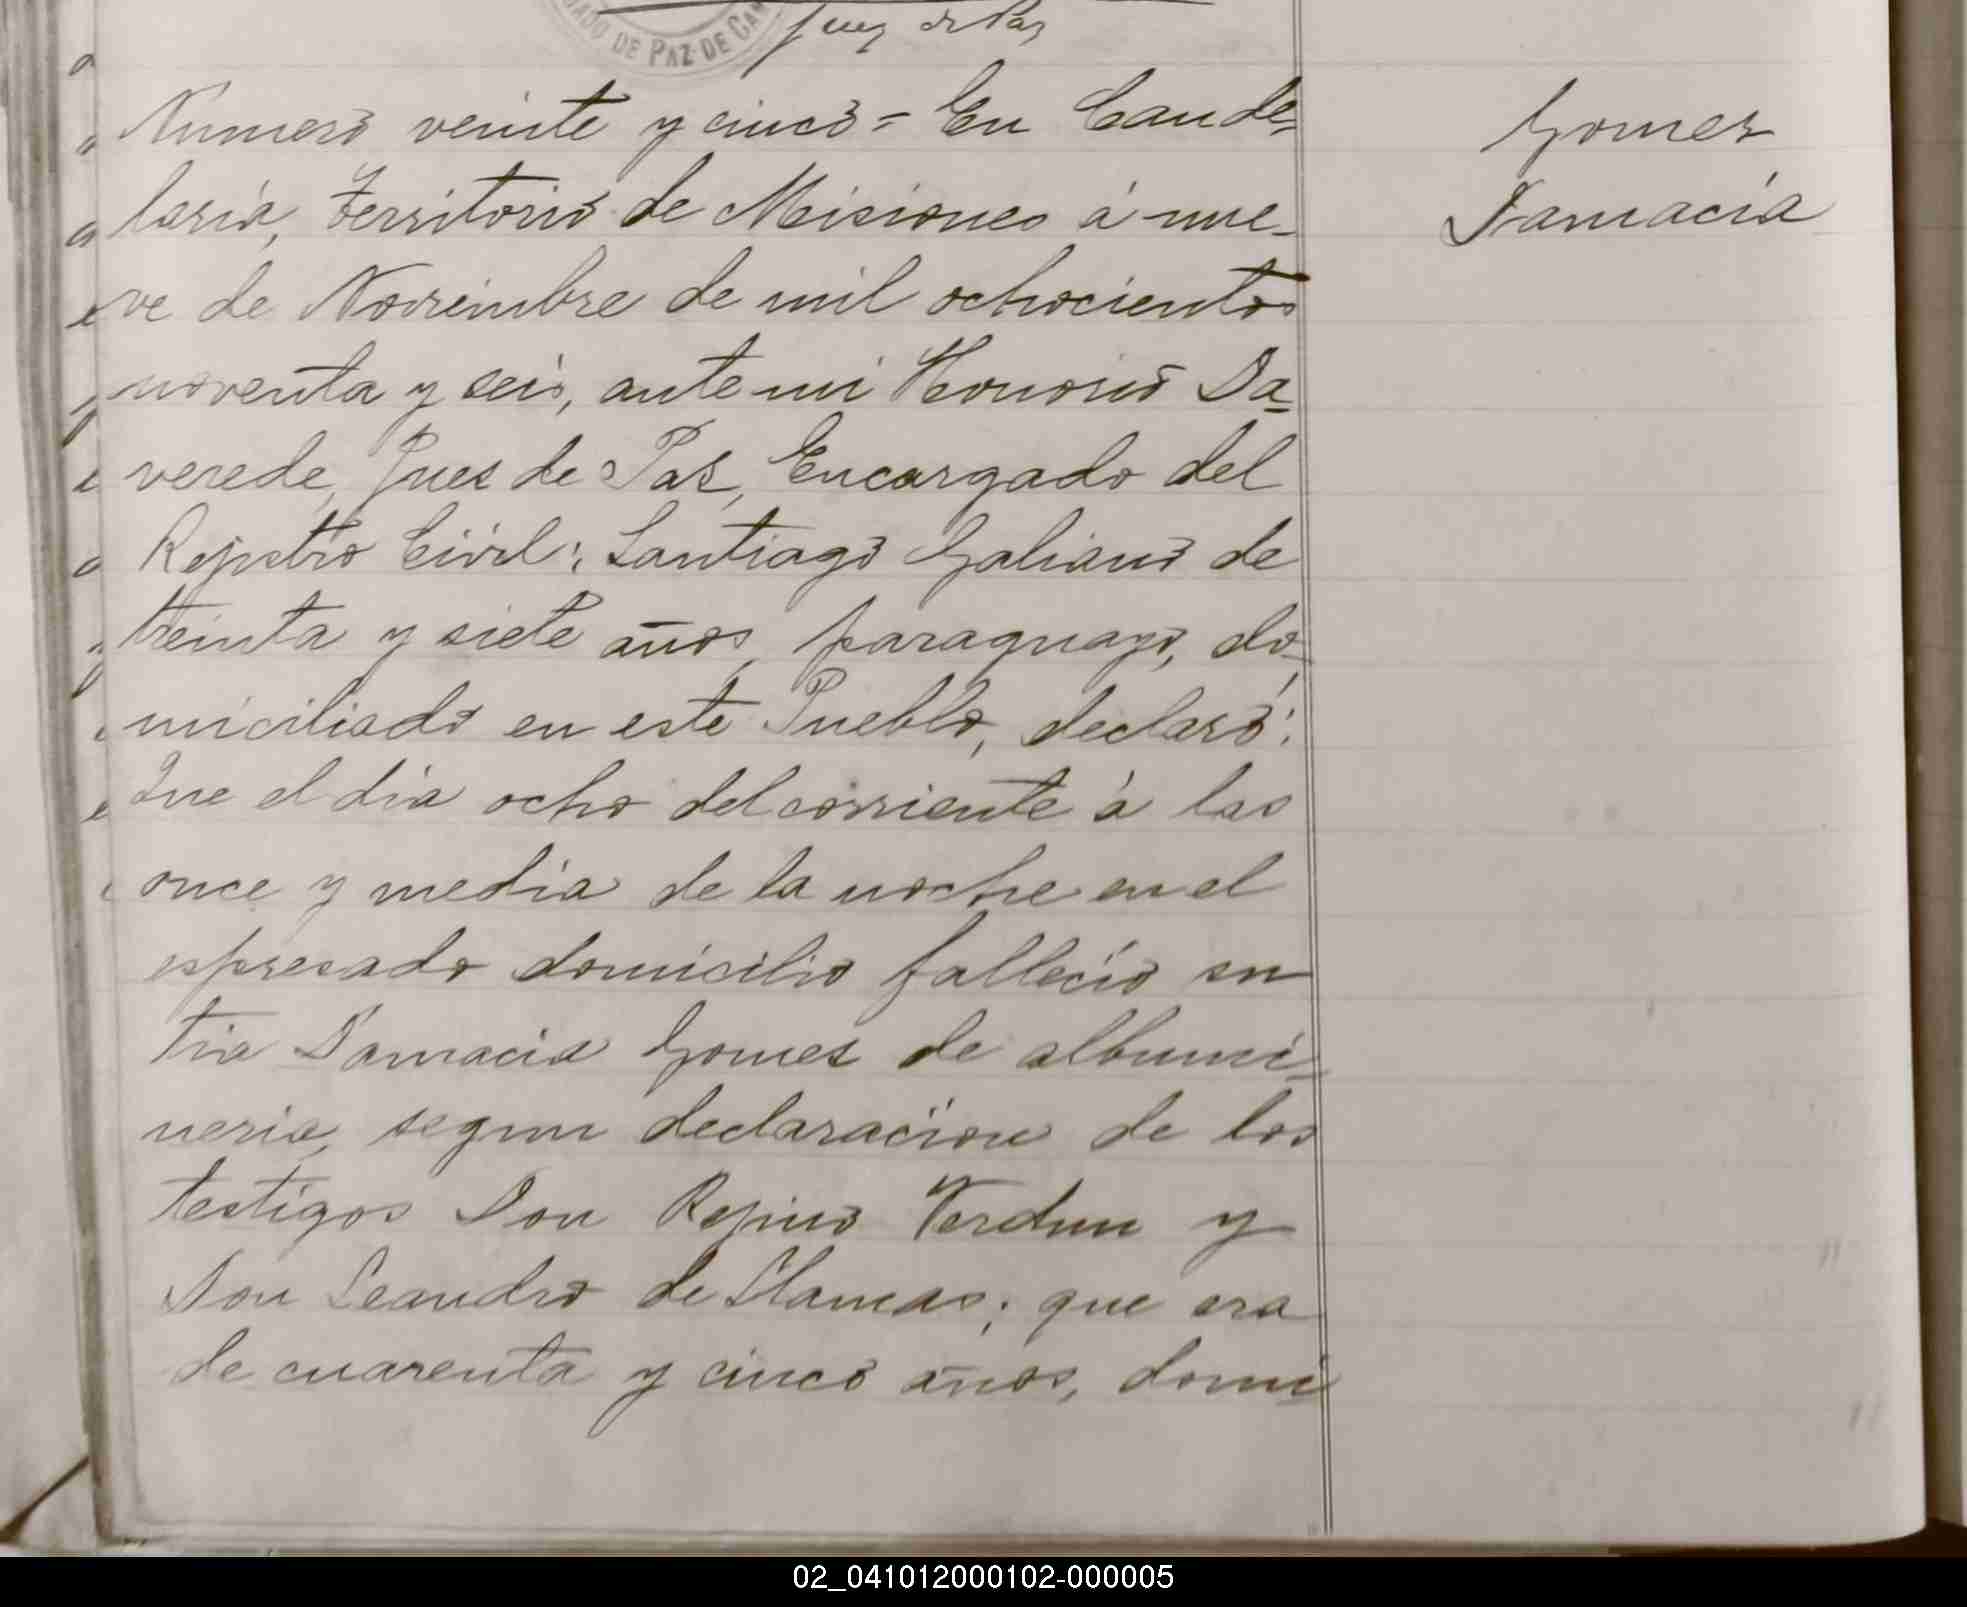 DO DE PAZ DE CAN
Juez de Paz
Numero veinte y cinco = En Cande=
laria, Territorio de Misiones á nue-
ve de Noviembre de mil ochocientos
noventa y seis, ante mi Honorio Da=
verede, Jues de Pas, Encargado del
Rejistro Civil: Santiago Galiano de
treinta y siete años, paraguayo, do-
miciliado en este Pueblo, declaró:
Que el dia ocho del corriente á las
once y media de la noche en el
espresado domicilio falleció su
tia Damacia Gomes de albumi-
neria, segun declaracion de los
testigos Don Rejino Verdun y
Don Leandro de Llamas; que era
de cuarenta y cinco años, domi
Gomez
Damacia
02_041012000102-000005